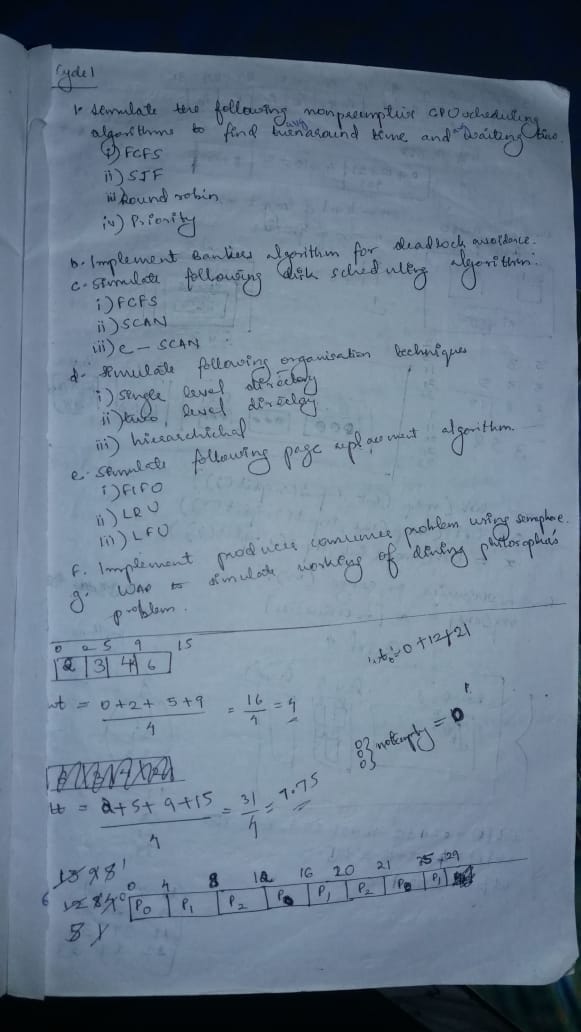 Cycle 1
1. Semulate the following nonpreemptive CPU scheduling
algorithms to find avg turnaround time and waiting time.
i) FCFS
ii) SJF
iii) Round robin
iv) Priority
b. Implement Bankers algorithm for deadlock avoidance.
c. Simulate following disk scheduling algorithm.
i) FCFS
ii) SCAN
iii) c - SCAN
d. Simulate following organisation techniques
i) Single level directory
ii) two level directory
iii) hierarchichal
e. Simulate following page replacement algorithm.
i) FIFO
ii) LRU
iii) LFU
f. Implement producer consumer problem using semaphore.
g. WAP to simulate working of dining philosopha's
problem.
0 2 5 9 15
2 3 4 6
wt = 0+2+5+9 / 4 = 16/4 = 4
w.t. = 0+12+21
notempty = 0
tt = 2+5+9+15 / 4 = 31/4 = 7.75
0 4 8 12 16 20 21 25 29
P0 P1 P2 P0 P1 P2 P0 P1